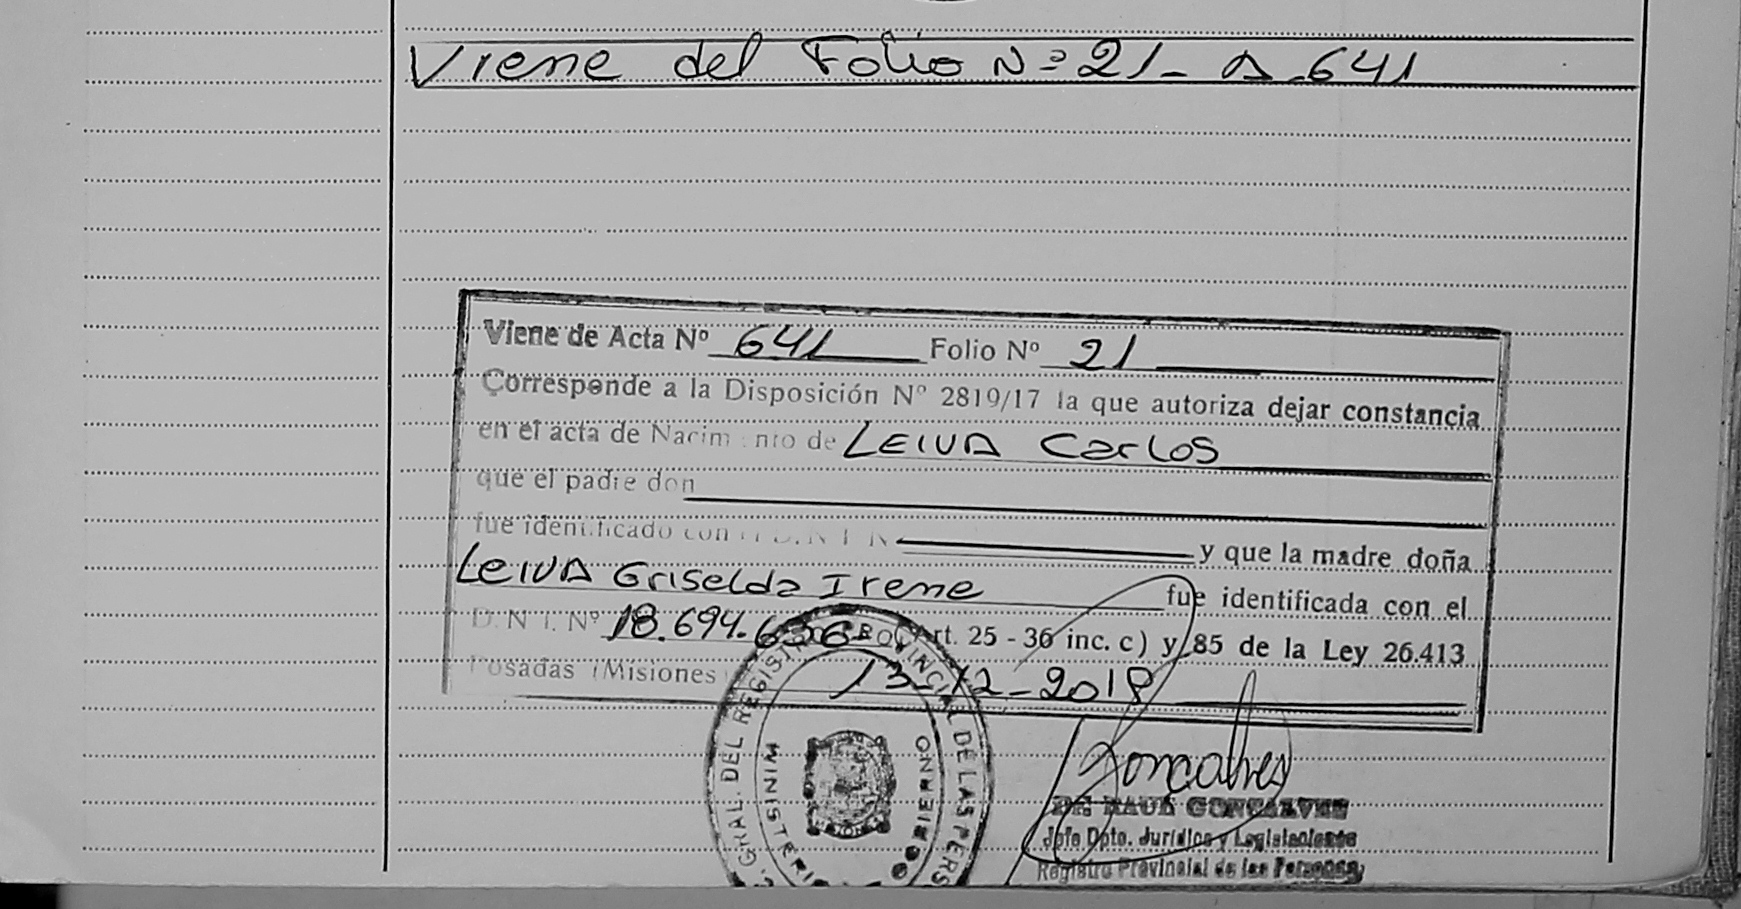 Viene del Folio Nº 21 - A - 641
Viene de Acta Nº 641 Folio Nº 21
Corresponde a la Disposición Nº 2819/17 la que autoriza dejar constancia
en el acta de Nacim nto de LEIVA Carlos
que el padre don
fue identificado con D.N.I. N
y que la madre doña
LEIVA Griselda Irene fue identificada con el
D.N.I. Nº 18.694.636 Art. 25 - 36 inc. c) y 85 de la Ley 26.413
Posadas (Misiones 13-12-2018
GRAL. DEL REGISTRO PROVINCIAL DE LAS PERS
MINISTERI
GOBIERNO
Goncalves
RAUL GONCALVES
Jefe Dpto. Jurídico y Legislaciones
Registro Provincial de las Personas